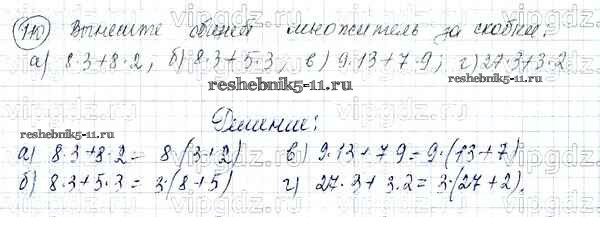 110 Вынесите общий множитель за скобки:
а) 8·3+8·2; б) 8·3+5·3; в) 9·13+7·9; г) 27·3+3·2.
reshebnik5-11.ru
reshebnik5-11.ru
Решение:
reshebnik5-11.ru
а) 8·3+8·2= 8·(3+2) в) 9·13+7·9=9·(13+7)
б) 8·3+5·3= 3·(8+5) г) 27·3+3·2=3·(27+2).